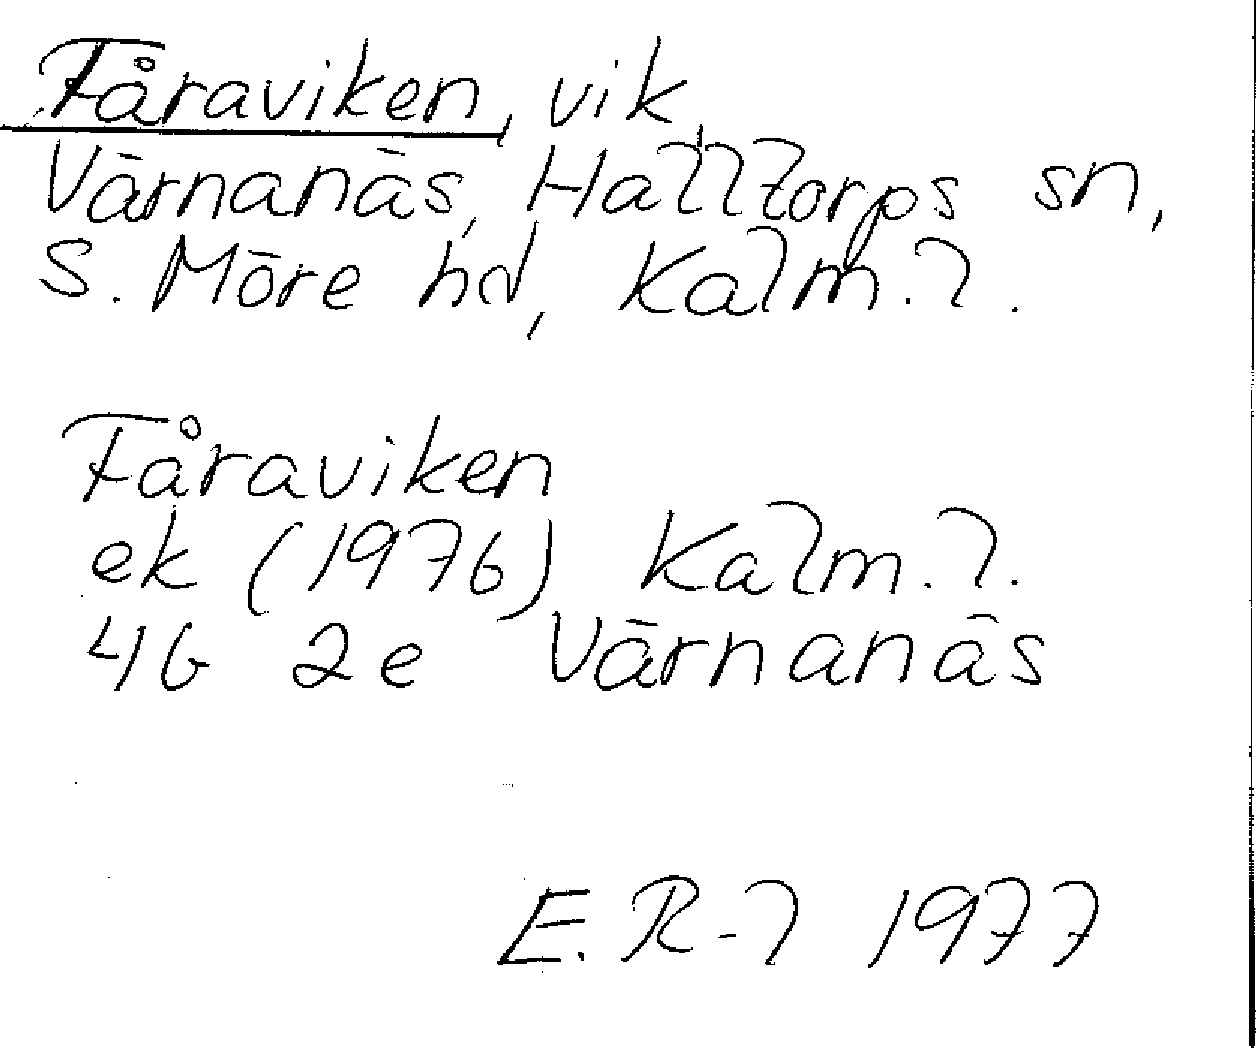 Fåraviken, vik
Värnanäs, Halltorps sn,
S. Möre hd, Kalm. l.
Fåraviken
ek (1976) Kalm. l.
4G 2e Värnanäs
E. R-l 1977